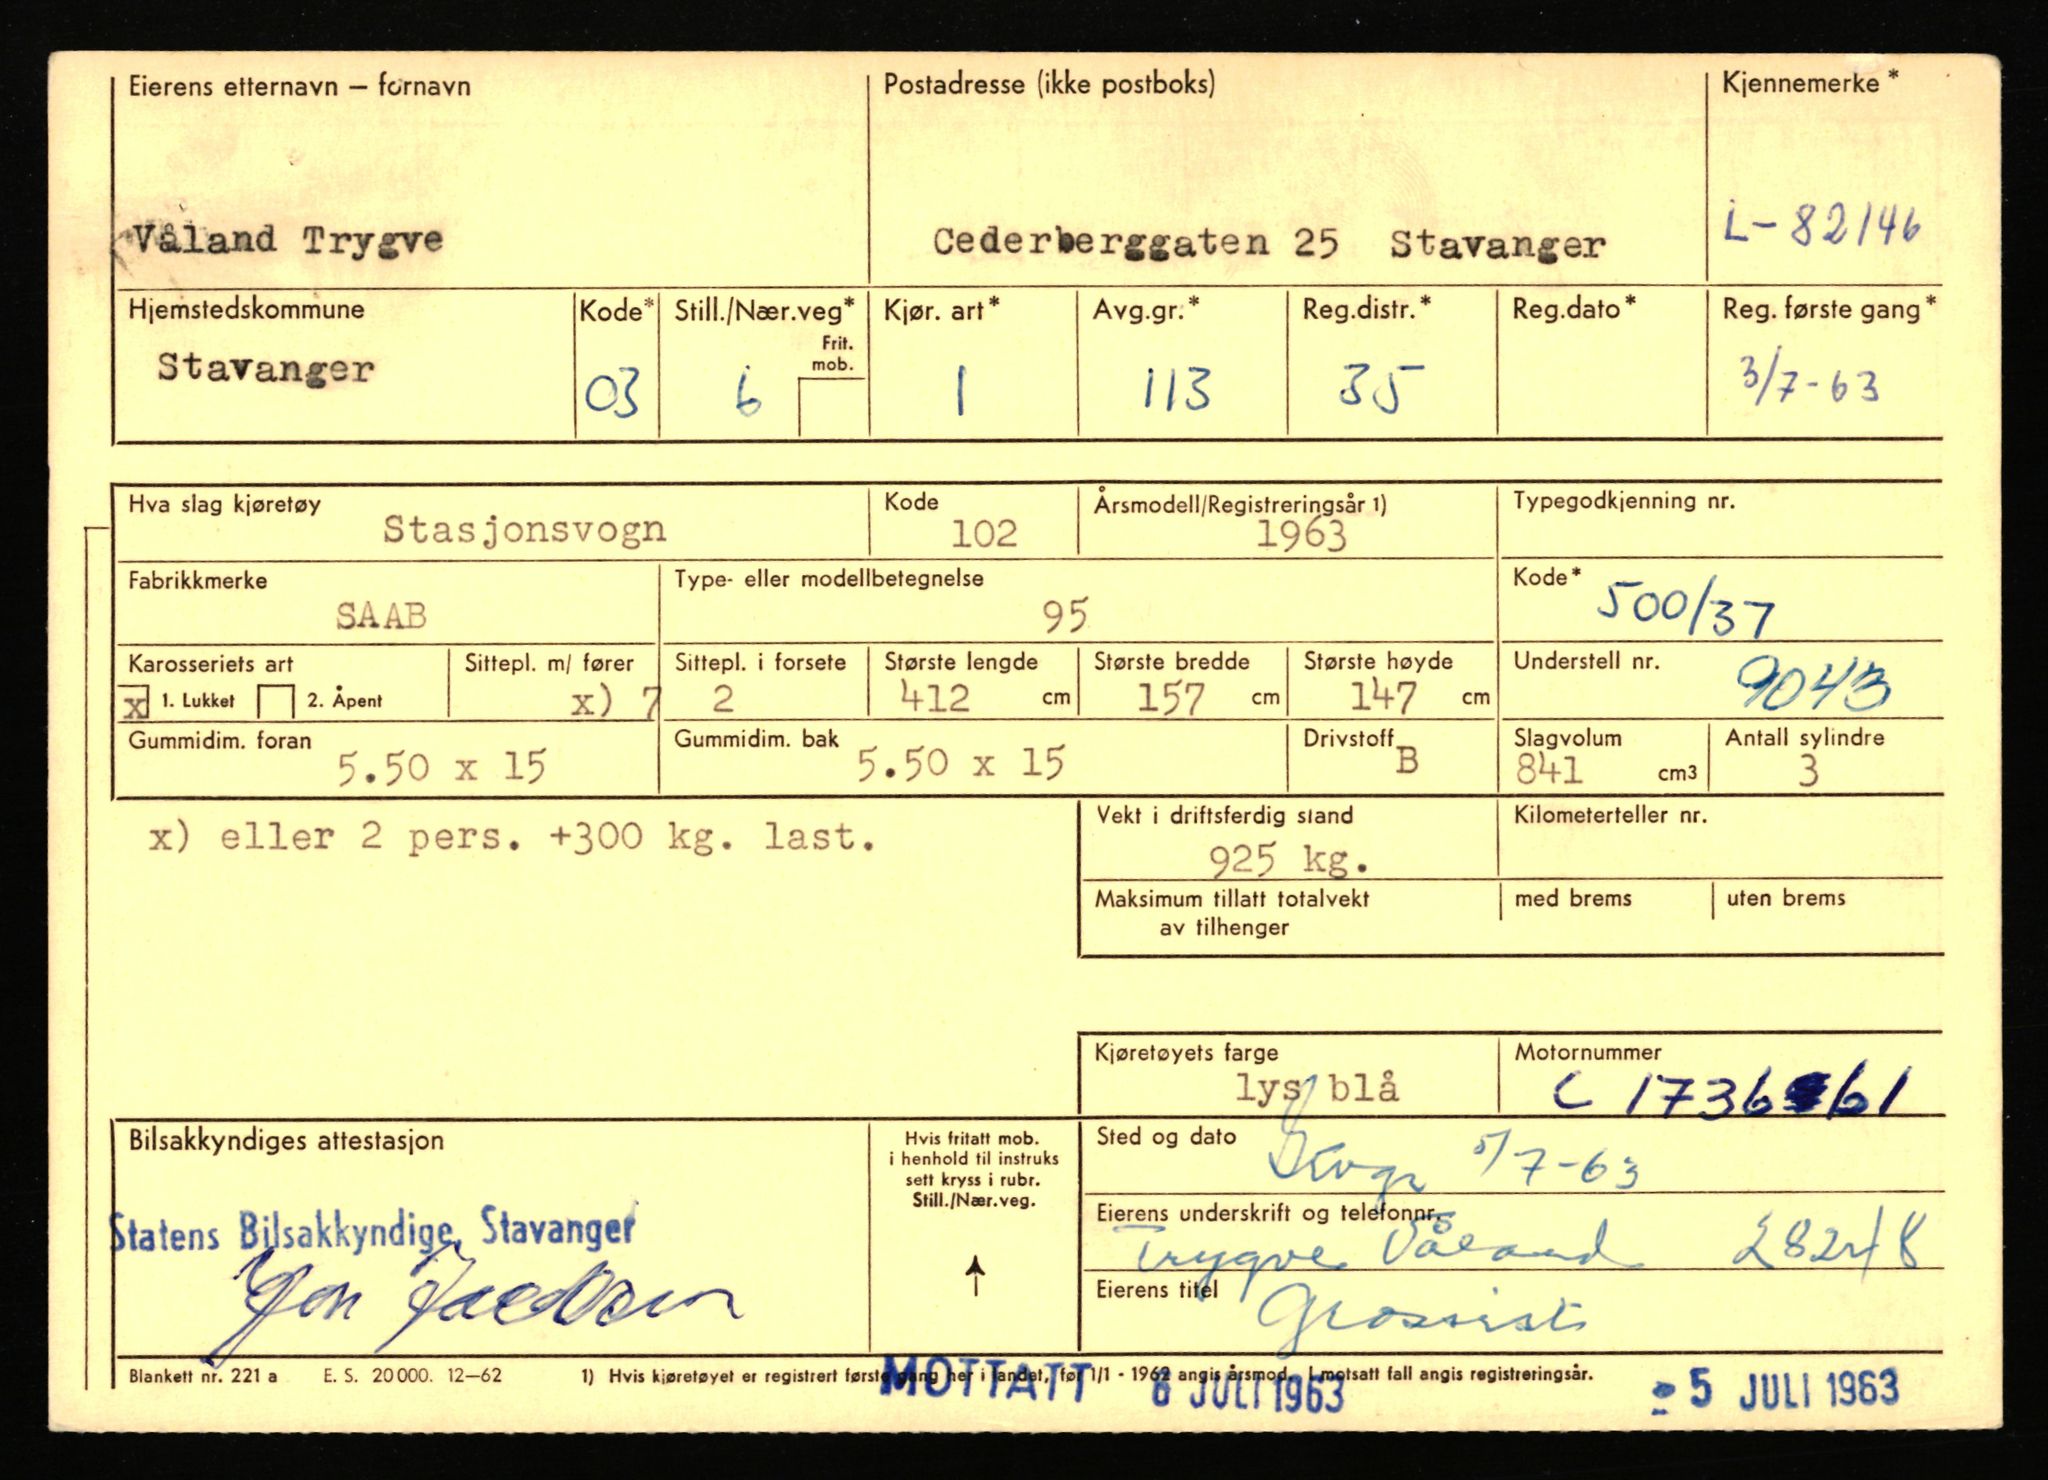 Eierens etternavn – fornavn Postadresse (ikke postboks) Kjennemerke*
Våland Trygve Cederberggaten 25 Stavanger L-82146
Hjemstedskommune Kode* Still./Nær.veg* Kjør. art* Avg.gr.* Reg.distr.* Reg.dato* Reg. første gang*
Frit. mob.
Stavanger 03 6 1 113 35 3/7-63
Hva slag kjøretøy Kode Årsmodell/Registreringsår 1) Typegodkjenning nr.
Stasjonsvogn 102 1963
Fabrikkmerke Type- eller modellbetegnelse Kode*
SAAB 95 500/37
Karosseriets art Sittepl. m/ fører Sittepl. i forsete Største lengde Største bredde Største høyde Understell nr.
x 1. Lukket 2. Åpent x) 7 2 412 cm 157 cm 147 cm 9043
Gummidim. foran Gummidim. bak Drivstoff Slagvolum Antall sylindre
5.50 x 15 5.50 x 15 B 841 cm3 3
x) eller 2 pers. +300 kg. last.
Vekt i driftsferdig stand Kilometerteller nr.
925 kg.
Maksimum tillatt totalvekt av tilhenger med brems uten brems
Kjøretøyets farge Motornummer
lys blå C 1736 61
Bilsakkyndiges attestasjon
Hvis fritatt mob.
i henhold til instruks
sett kryss i rubr.
Still./Nær.veg.
Sted og dato
5/7-63
Statens Bilsakkyndige, Stavanger
Eierens underskrift og telefonnr.
Trygve Våland
Jon Jacobsen
Eierens titel
Grossist
Blankett nr. 221 a E. S. 20000. 12–62 1) Hvis kjøretøyet er registrert første gang her i landet, før 1/1 - 1962 angis årsmod. I motsatt fall angis registreringsår.
MOTTATT 8 JULI 1963 - 5 JULI 1963